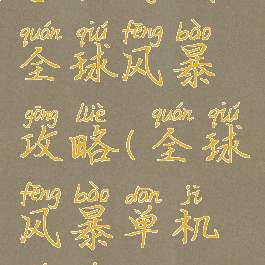 quán qiú fēng bào
全球风暴
gōng lüè quán qiú
攻略(全球
fēng bào dān jī
风暴单机